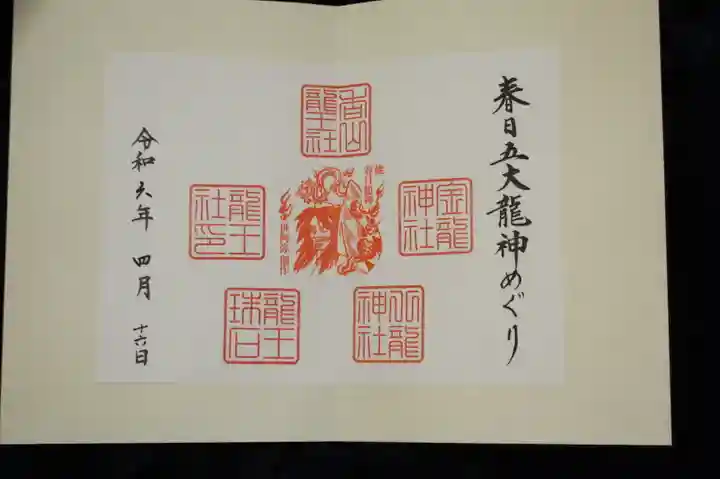 春日五大龍神めぐり
高山
龍王社
金龍
神社
龍王
社印
龍王
珠石
龍
神社
令和六年 四月 十六日